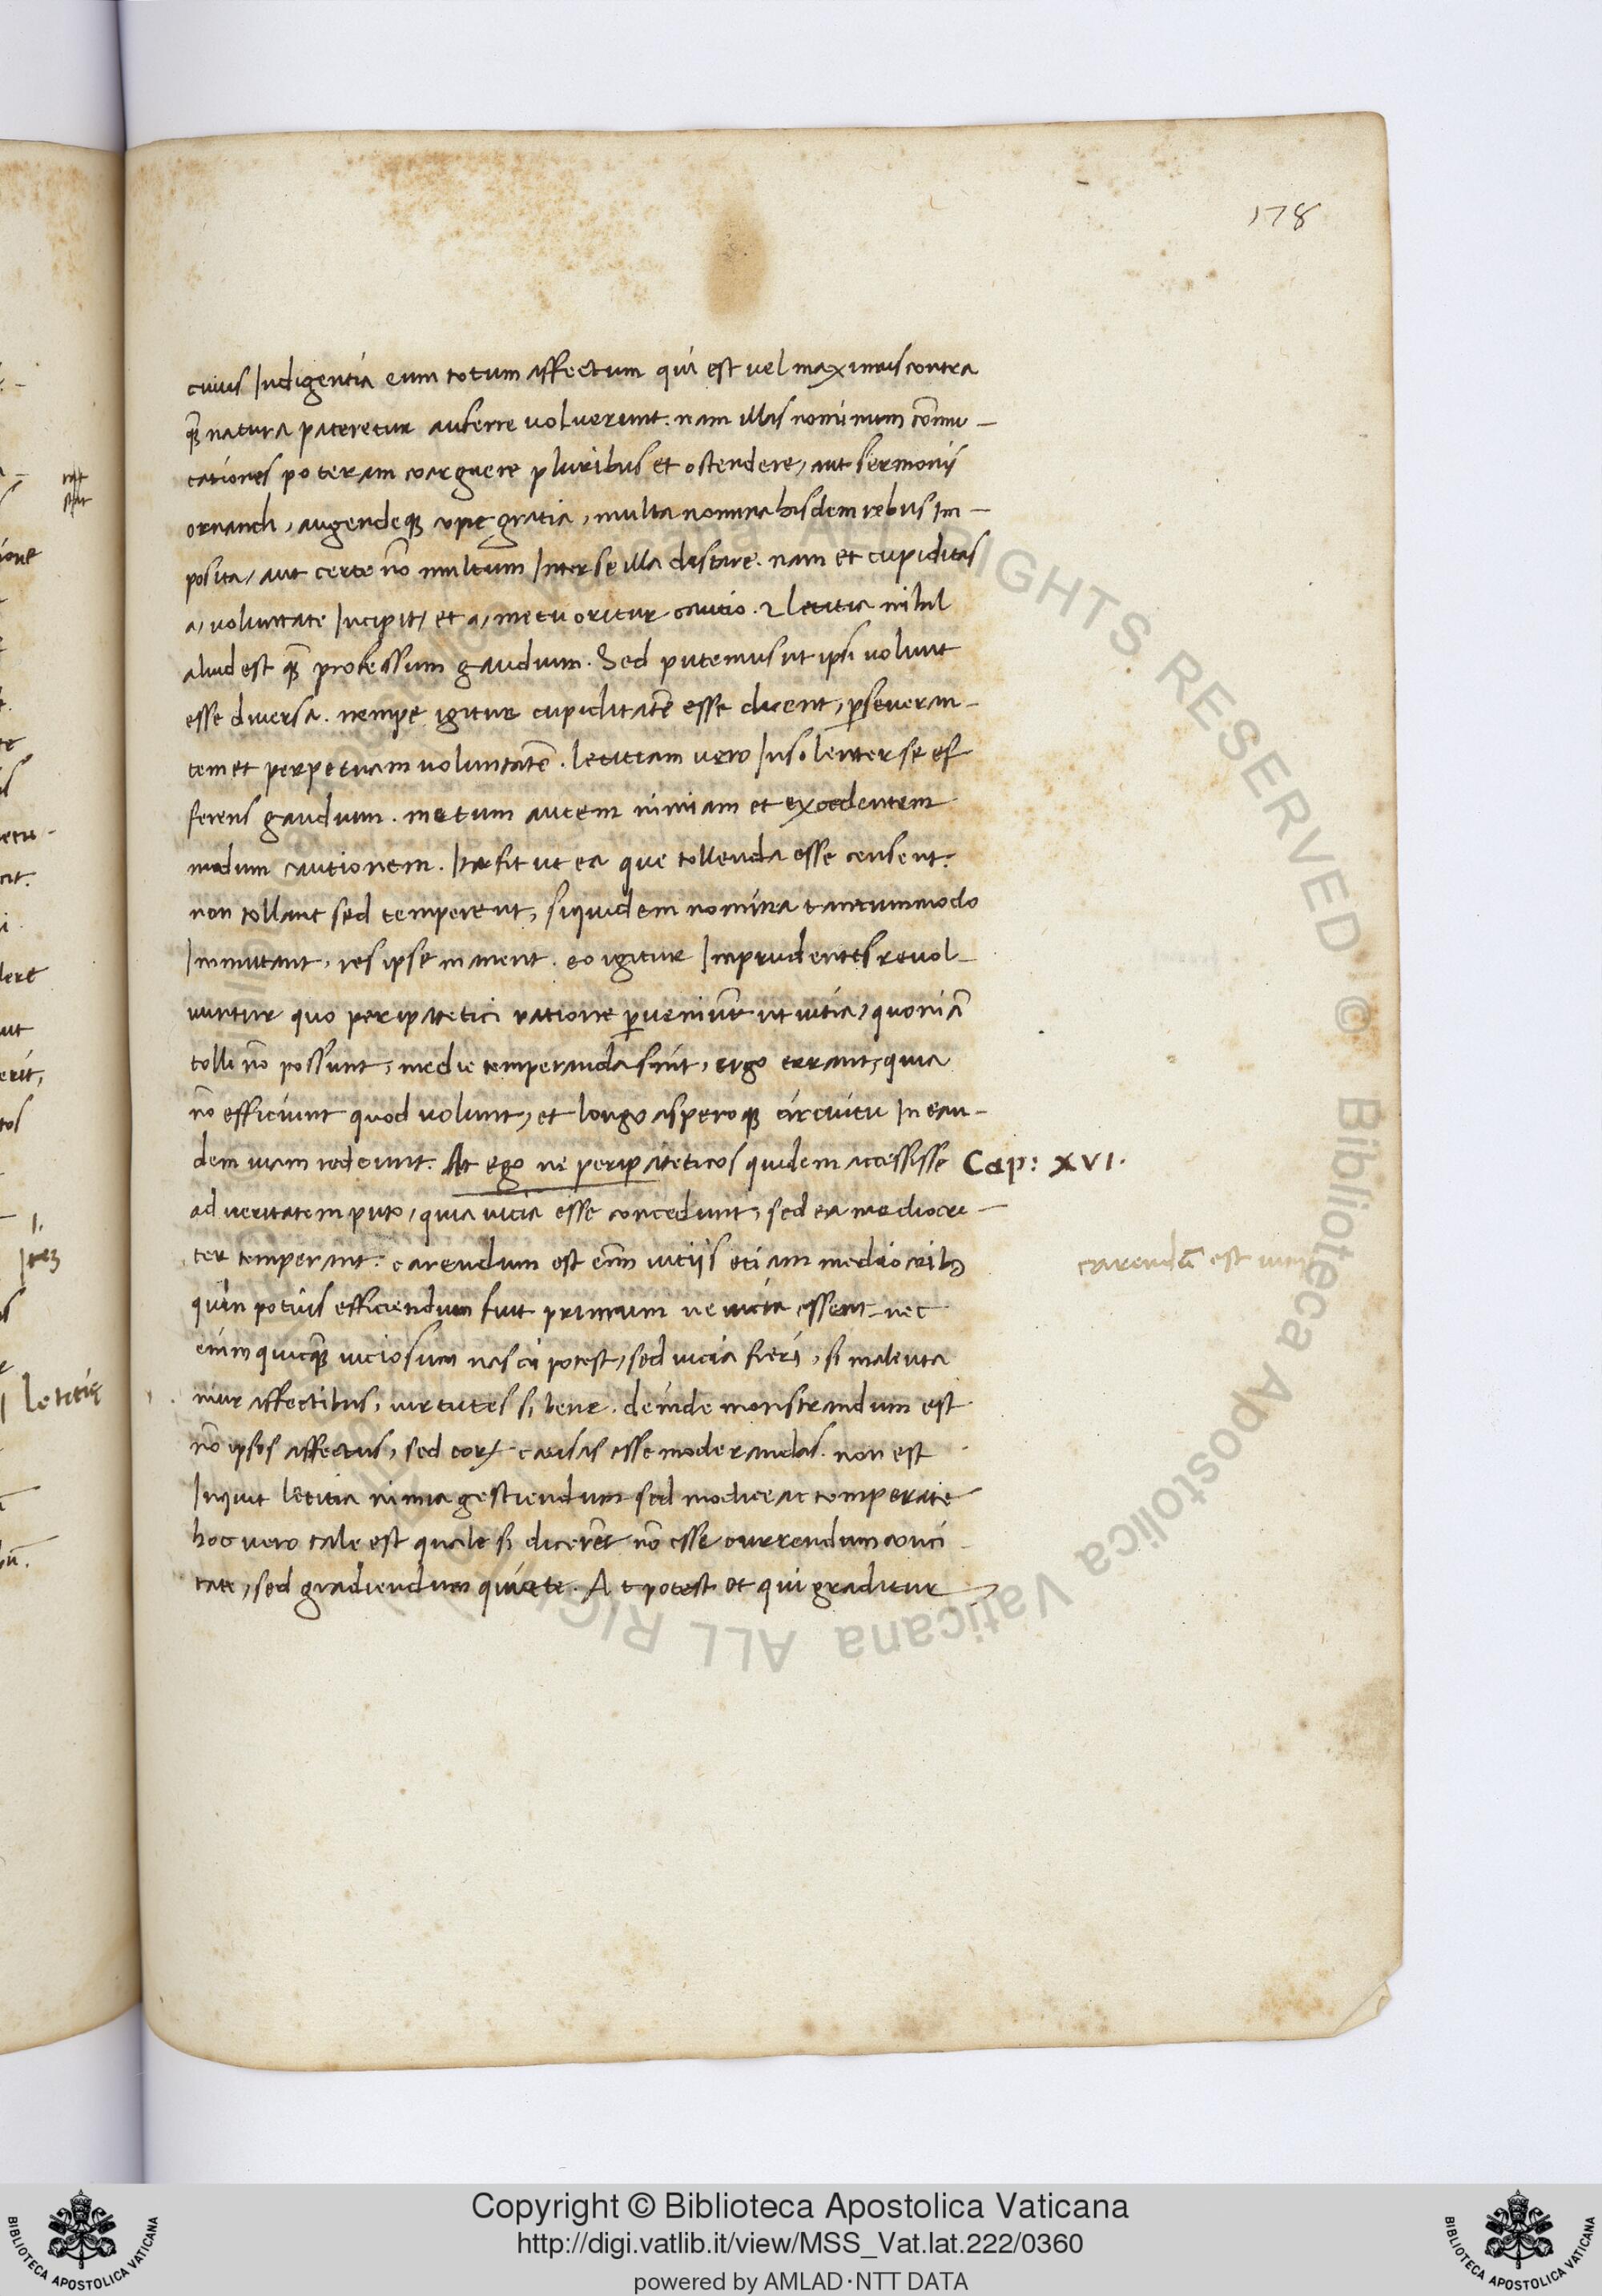 178
cuius Indigentia eum totum affectum qui est vel maximus contra
quã natura pateretur auferre voluerunt. nam illas nominum cõmu-
tationes poteram coarguere pluribus et ostendere, aut sermonis
ornandi, augendeque gratia, multa nomina hisdem rebus Im-
posita, aut certe nõ multum Inter se illa distare. nam et cupiditas
a, voluntate Incipit, et a, metu oritur cautio. & letitia nihil
aliud est quã professum gaudium. Sed putemus ut ipsi volunt
esse diversa. nempe igitur cupiditatẽ esse dicent, perseveran-
tem et perpetuam voluntatẽ. letitiam vero Insolenter se ef
ferens gaudium. metum autem nimiam et excedentem
modum cautionem. Ita fit ut ea que tollenda esse censent.
non tollant sed temperent, siquidem nomina tantummodo
Immutant, res ipse manent. eo igitur Imprudentes revol-
vuntur quo peripatetici ratione perveniunt ut vitia, quoniã
tolli nõ possunt, medie temperanda sint, ergo errant, quia
nõ efficiunt quod volunt, et longo asperoque circuitu In ean-
dem viam redeunt. At ego ne peripateticos quidem accessisse
Cap: XVI.
ad veritatem puto, quia vicia esse concedunt, sed ea mediocri-
ter temperant. carendum est enim viciis etiam mediocribus
carendũ est
quin potius efficiendum fuit primum ne vicia essent. nec
enim quicquã viciosum nasci potest, sed vicia fieri, si male uta
mur affectibus, virtutes si bene. deinde monstrandum est
nõ ipsos affectus, sed eorum causas esse moderandas. non est
Inquit letitia nimia gestiendum sed modice ac temperate
hoc vero tale est quale si dicerẽt nõ esse currendum conci
tate, sed gradiendum quiete. At potest et qui graditur
letitię
Copyright © Biblioteca Apostolica Vaticana
http://digi.vatlib.it/view/MSS_Vat.lat.222/0360
powered by AMLAD·NTT DATA
BIBLIOTECA APOSTOLICA VATICANA
BIBLIOTECA APOSTOLICA VATICANA